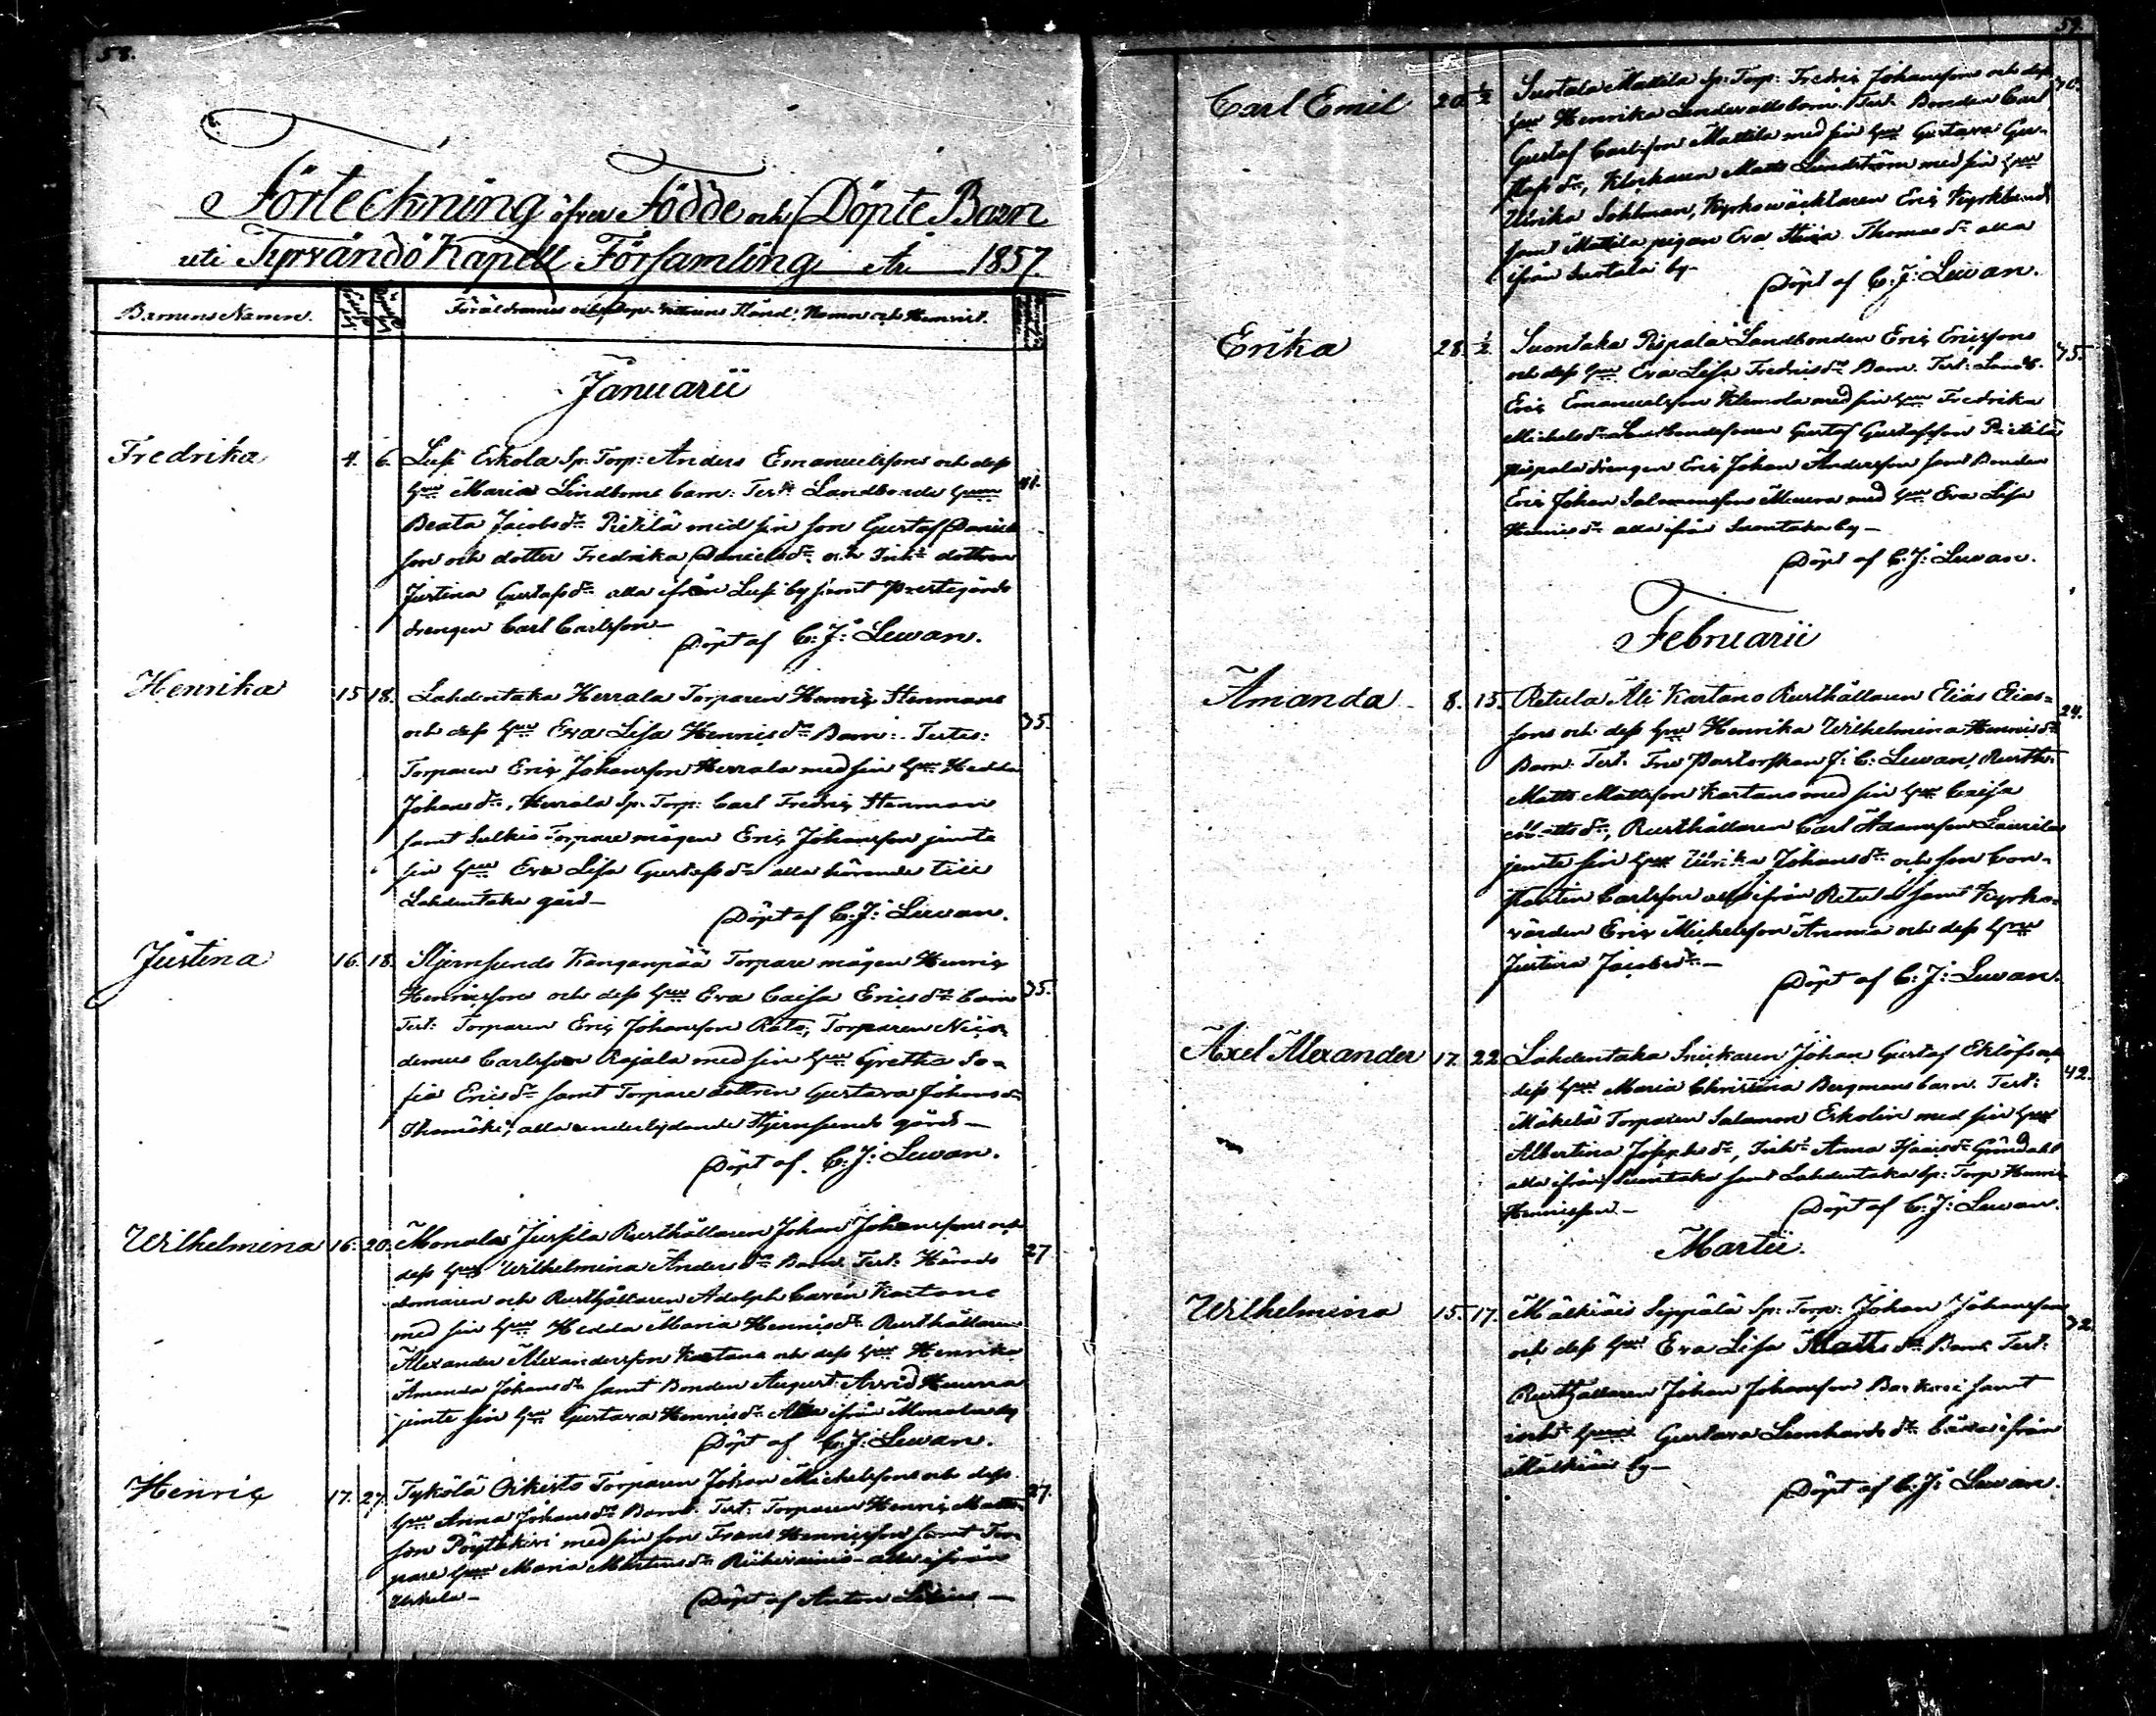 58.
Förteckning öfver Födde och Döpte Barn
uti Tyrvändö Kapell Församling År 1857.
Barnens Namn. Föräldrarnes och Dop-vittnens Stånd, Namn och Hemvist.
Januarii
Fredrika 4. 6. Lusi Erkola Sp. Torp: Anders Emanuelssons och dess
hu Maria Lindboms barn: Test: Landbonde hu 41.
Beata Jacobsdr Pietilä med sin son Gustaf Daniels
son och dotter Fredrika Danielsdr och Inh: dottren
Justina Gustafsdr alla ifrån Lusi by samt Prestegårds
drengen Carl Carlsson—
Döpt af C: J: Lewan.
Henrika 15 18. Lahdentaka Herrala Torparen Henric Stenmans
och dess hu Eva Lisa Henricsdr Barn: Testes: 35.
Torparen Eric Johansson Herrala med sin hu Hedda
Johansdr, Herrala Sp. Torp: Carl Fredric Stenman
samt Sulkis Torpare mågen Eric Johansson jemte
sin hu Eva Lisa Gustafsdr alla hörande till
Lahdentaka gård—
Döpt af C: J: Lewan.
Justina 16. 18. Stjernsunds Kanganpää Torpare mågen Henric
Henricssons och dess hu Eva Caisa Ericsdr barn 35.
Test: Torparen Eric Johansson Rats, Torparen Nico-
demus Carlsson Rajala med sin hu Gretha So-
fia Ericsdr samt Torpare dottren Gustava Johansdr
alla underlydande Stjernsunds gård—
Döpt af C: J: Lewan.
Wilhelmina 16. 20. Monala Jussila Rusthållaren Johan Johanssons och
dess hu Wilhelmina Andersdr Barn. Test: Härads 27
domaren och Rusthållaren Adolph Carén Kartano
med sin hu Hedda Maria Henricsdr Rusthållaren
Alexander Alexandersson Kartano och dess hu Henrika
Amanda Johansdr samt Bonden August Arvid
jemte sin hu Gustava Henricsdr Alla ifrån Monala by
Döpt af C: J: Lewan.
Henric 17. 27. Tykölä Torparen Johan Michelssons och dess 27.
hu Anna Johansdr Barn. Test: Torparen Henric Matts
son med sin son Frans Henricsson samt Tor-
pare hu Maria Mårtensdr alla ifrån
Döpt af Anton —
59.
Carl Emil 20. ½ Suotala Mattila Sp: Torp: Fredric Johanssons och dess 30.
hu Henrika barn. Test. Bonden Carl
Gustaf Carlsson Mattila med sin hu Gustava Gu-
stafsdr, Klockaren Matts Lindström med sin hu
Ulrika Sohlman, Kyrkowäcktaren Eric Kyrklund
samt Mattila pigan Eva Stina Thomasdr alla
ifrån Suotala by—
Döpt af C: J: Lewan.
Erika 28. ½. Suontaka Pispala Landbonden Eric Ericssons 35.
och dess hu Eva Lisa Fredricsdr Barn. Test: Landb.
Eric Emanuelsson Klemola med sin hu Fredrika
Michelsdr Gustaf Gustafsson Pietilä
Pispala drengen Eric Johan Andersson samt Bonden
Eric Johan Salomonsson med hu Eva Lisa
Henricsdr alla ifrån Suontaka by—
Döpt af C: J: Lewan.
Februarii
Amanda 8. 15. Retula Ali Kartano Rusthållaren Elias Elias- 24.
sons och dess hu Henrika Wilhelmina Henricsdr
Barn. Test. Fru Pastorskan J: C: Lewan, Rusth:
Matts Mattsson Kartano med sin hu Caisa
Mattsdr, Rusthållaren Carl Adamsson Laurila
jemte sin hu Ulrika Johansdr och son Con-
stantin Carlsson alla ifrån Retula samt Kyrko-
värden Eric Michelsson Anoma och dess hu
Justina Jacobsdr—
Döpt af C: J: Lewan.
Axel Alexander 17. 22. Lahdentaka Snickaren Johan Gustaf Eklöfs och
dess hu Maria Christina Bergmans barn. Test: 42.
Mäkelä Torparen Salomon Erkolin med sin hu
Albertina Josephsdr, Inh: Anna
alla ifrån Suontaka samt Lahdentaka Sp: Torp: Henric
Henricsson.—
Döpt af C: J: Lewan.
Martii.
Wilhelmina 15. 17. Mälkiäis Seppälä Sp: Torp: Johan Johanssons 32.
och dess hu Eva Lisa Mattsdr Barn. Test:
Rusthållaren Johan Johansson samt
inh: hu Gustava Leonhardsdr båda ifrån
Mälkiäis by—
Döpt af C: J: Lewan.